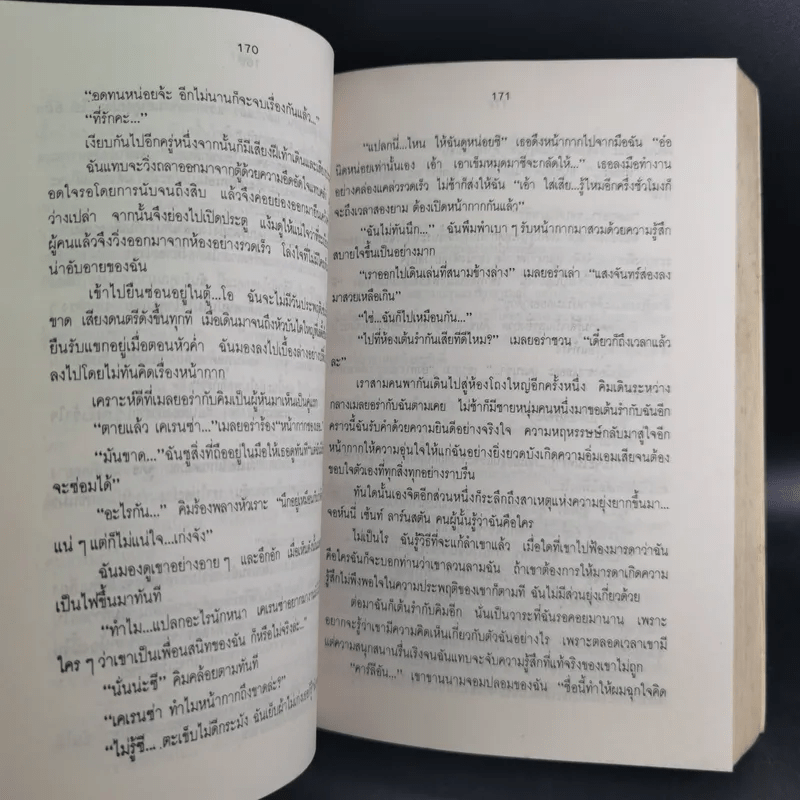 170
“อดทนหน่อยจ้ะ อีกไม่นานก็จะจบเรื่องกันแล้ว...”
“ที่รักคะ...”
เงียบกันไปอีกครู่หนึ่งจากนั้นก็มีเสียงฝีเท้าเดินและเสียง
ฉันแทบจะวิ่งถลาออกมาจากตู้ด้วยความอึดอัดใจแทบ
อดใจรอโดยการนับจนถึงสิบ แล้วจึงค่อยย่องออกมายืน
ว่างเปล่า จากนั้นจึงย่องไปเปิดประตู แง้มดูให้แน่ใจว่า
ผู้คนแล้วจึงวิ่งออกมาจากห้องอย่างรวดเร็ว โล่งใจที่ไม่มีใคร
น่าอับอายของฉัน
เข้าไปยืนซ่อนอยู่ในตู้...โอ ฉันจะไม่มีวันประพฤติ
ขาด เสียงดนตรีดังขึ้นทุกที เมื่อเดินมาจนถึงหัวบันไดใหญ่
ยืนรับแขกอยู่เมื่อตอนหัวค่ำ ฉันมองลงไปเบื้องล่าง
ลงไปโดยไม่ทันคิดเรื่องหน้ากาก
เคราะห์ดีที่เมลยอร่ากับคิมเป็นผู้หันมาเห็นเป็น
“ตายแล้ว เคเรนซ่า...”เมลยอร่าร้อง“หน้ากากของ
“มันขาด...”ฉันชูสิ่งที่ถืออยู่ในมือให้เธอดูทันที
จะซ่อมได้”
“อะไรกัน...” คิมร้องพลางหัวเราะ “นึกอยู่เหมือน
แน่ ๆ แต่ก็ไม่แน่ใจ...เก่งจัง”
ฉันมองดูเขาอย่างอาย ๆ และอึกอัก เมื่อเห็น
เป็นไฟขึ้นมาทันที
“ทำไม...แปลกอะไรนักหนา เคเรนซ่าอยาก
ใคร ๆ ว่าเขาเป็นเพื่อนสนิทของฉัน ก็หรือไม่จริงล่ะ...”
“นั่นน่ะซี” คิมคล้อยตามทันที
“เคเรนซ่า ทำไมหน้ากากถึงขาดล่ะ?”
“ไม่รู้ซี... ตะเข็บไม่ดีกระมัง ฉันเย็บผ้าไม่เก่ง
171
“แปลกนี่...ไหน ให้ฉันดูหน่อยซิ” เธอดึงหน้ากากไปจากมือฉัน “อ๋อ
นิดหน่อยเท่านั้นเอง เอ้า เอาเข็มหมุดมาซีจะกลัดให้...” เธอลงมือทำงาน
อย่างคล่องแคล่วรวดเร็ว ไม่ช้าก็ส่งให้ฉัน “เอ้า ใส่เสีย...รู้ไหมอีกครึ่งชั่วโมงก็
จะถึงเวลาสองยาม ต้องเปิดหน้ากากกันแล้ว”
“ฉันไม่ทันนึก...” ฉันพึมพำเบา ๆ รับหน้ากากมาสวมด้วยความรู้สึก
สบายใจขึ้นเป็นอย่างมาก
“เราออกไปเดินเล่นที่สนามข้างล่าง” เมลยอร่าเล่า “แสงจันทร์ส่องลง
มาสวยเหลือเกิน”
“ใช่...ฉันก็ไปเหมือนกัน...”
“ไปที่ห้องเต้นรำกันเสียทีดีไหม?” เมลยอร่าชวน “เดี๋ยวก็ถึงเวลาแล้ว
ละ”
เราสามคนพากันเดินไปสู่ห้องโถงใหญ่อีกครั้งหนึ่ง คิมเดินระหว่าง
กลางเมลยอร่ากับฉันตามเคย ไม่ช้าก็มีชายหนุ่มคนหนึ่งมาขอเต้นรำกับฉันอีก
คราวนี้ฉันรับคำด้วยความยินดีอย่างจริงใจ ความหฤหรรษ์กลับมาสู่ใจอีก
หน้ากากให้ความอุ่นใจให้แก่ฉันอย่างยิ่งยวดบังเกิดความอิ่มเอมเสียจนต้อง
ขอบใจตัวเองที่ทุกสิ่งทุกอย่างราบรื่น
ทันใดนั้นเองจิตอีกส่วนหนึ่งก็ระลึกถึงสาเหตุแห่งความยุ่งยากขึ้นมา...
จอห์นนี่ เซ้นท์ ลาร์นสตัน คนผู้นั้นรู้ว่าฉันคือใคร
ไม่เป็นไร ฉันรู้วิธีที่จะแก้ลำเขาแล้ว เมื่อใดที่เขาไปฟ้องมารดาว่าฉัน
คือใครฉันก็จะบอกท่านว่าเขาลวนลามฉัน ถ้าเขาต้องการให้มารดาเกิดความ
รู้สึกไม่พึงพอใจในความประพฤติของเขาก็ตามที ฉันไม่มีส่วนยุ่งเกี่ยวด้วย
ต่อมาฉันก็เต้นรำกับคิมอีก นั่นเป็นวาระที่ฉันรอคอยมานาน เพราะ
อยากจะรู้ว่าเขามีความคิดเห็นเกี่ยวกับตัวฉันอย่างไร เพราะตลอดเวลาเขามี
แต่ความสนุกสนานรื่นเริงจนฉันแทบจะจับความรู้สึกที่แท้จริงของเขาไม่ถูก
“คาร์ลีอัน...” เขาขานนามจอมปลอมของฉัน “ชื่อนี้ทำให้ผมฉุกใจคิด